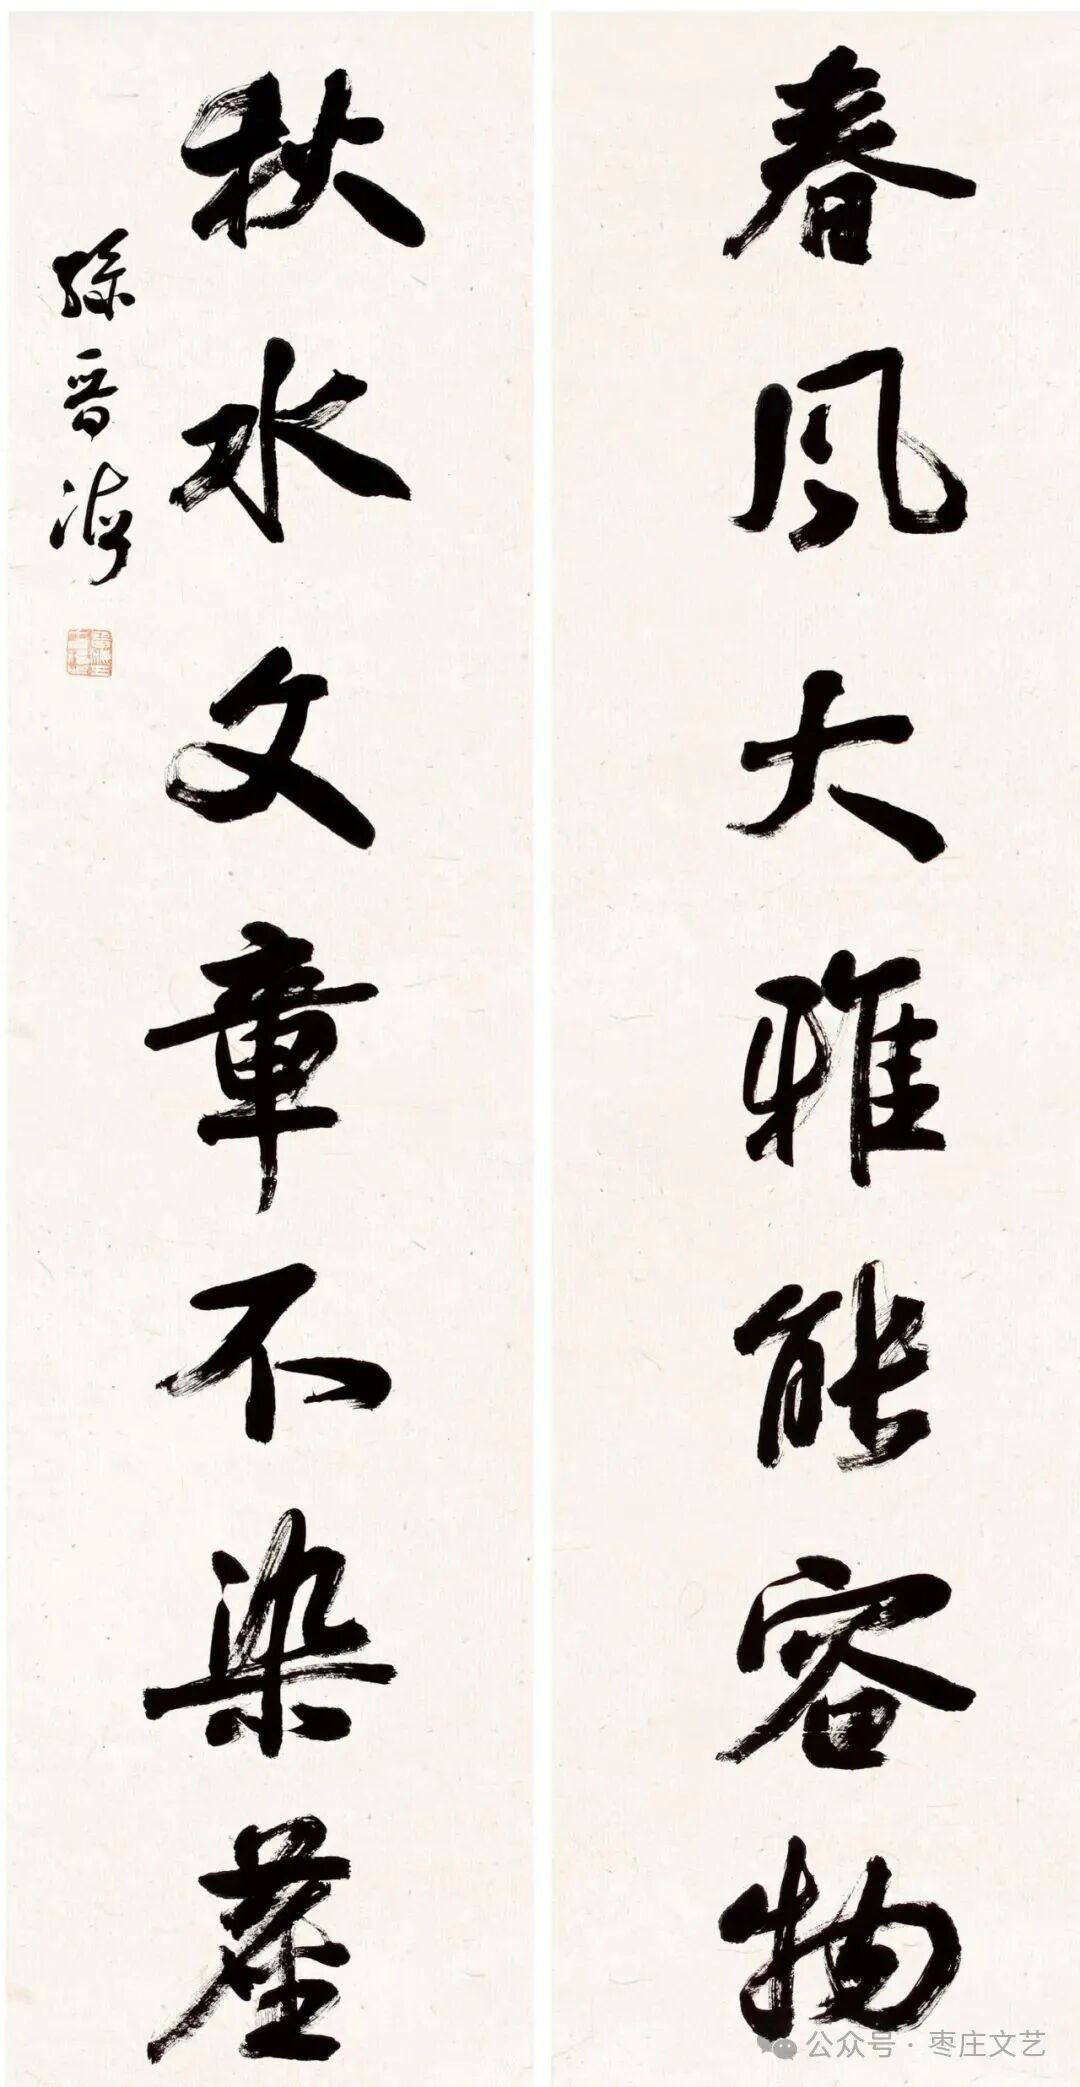 春风大雅能容物
秋水文章不染尘
孙晋海
公众号·枣庄文艺